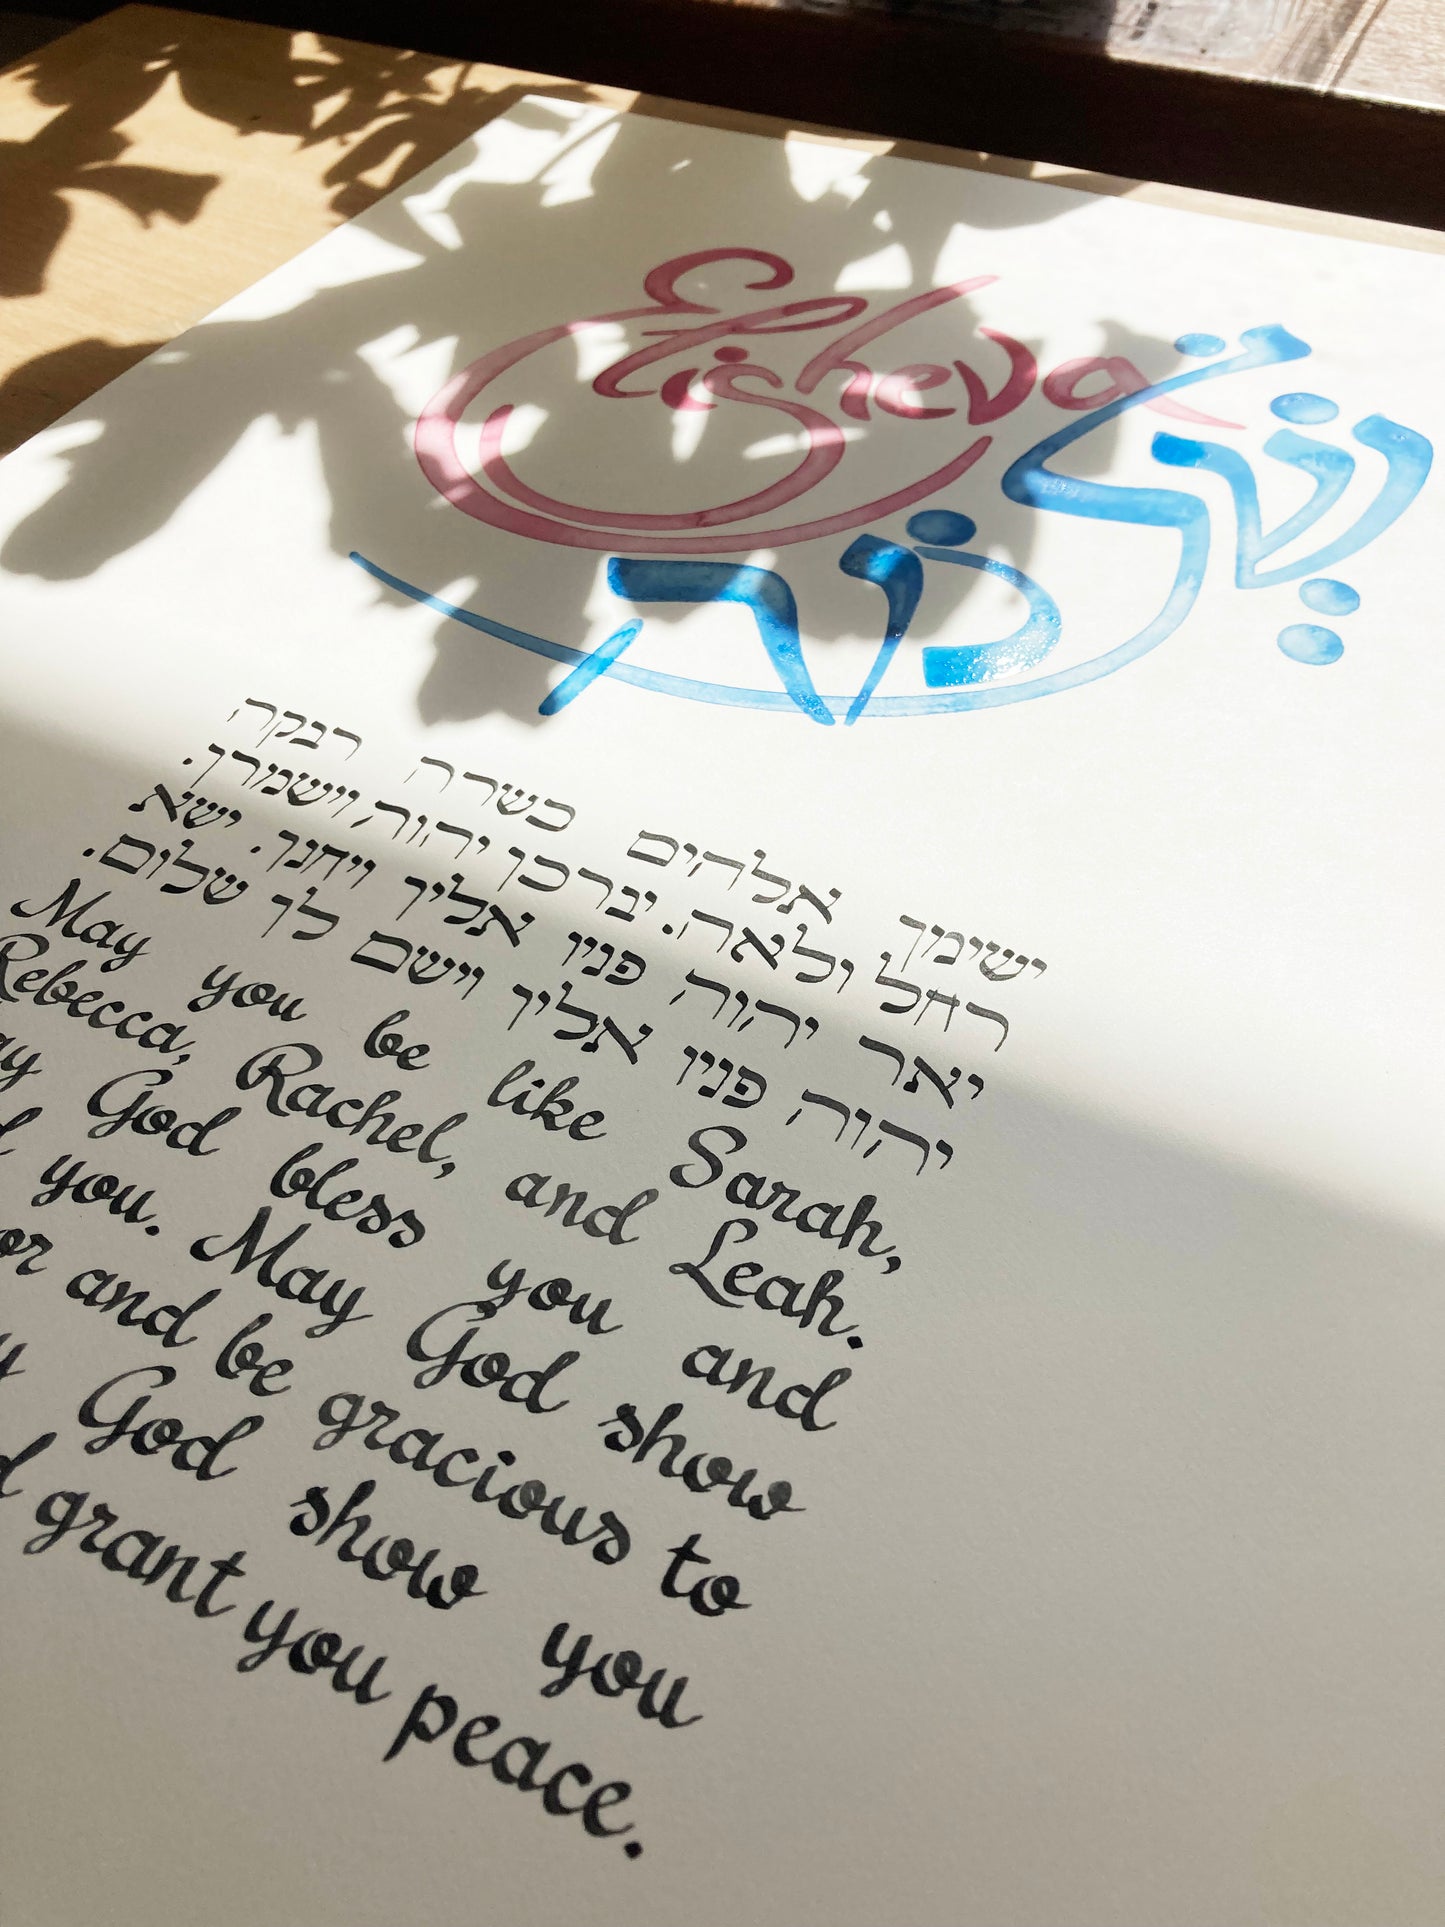 Elisheva
ישימך אלהים כשרה רבקה
רחל ולאה. יברכך יהוה וישמרך.
יאר יהוה פניו אליך ויחנך. ישא
יהוה פניו אליך וישם לך שלום.
May you be like Sarah,
Rebecca, Rachel, and Leah.
God bless you and
you. May God show
and be gracious to
God show you
grant you peace.